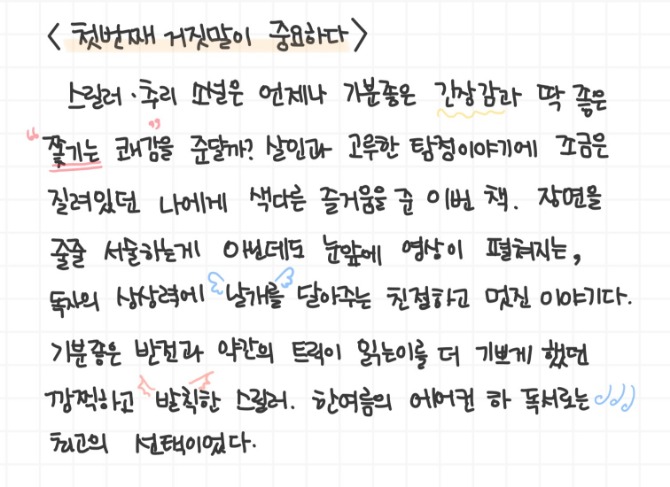 < 첫번째 거짓말이 중요하다 >
스릴러·추리 소설은 언제나 기분좋은 긴장감과 딱 좋은
"쫓기는 쾌감"을 준달까? 살인과 고루한 탐정이야기에 조금은
질려있던 나에게 색다른 즐거움을 준 이번 책. 장면을
줄줄 서술하는게 아닌데도 눈앞에 영상이 펼쳐지는,
독자의 상상력에 날개를 달아주는 친절하고 멋진 이야기다.
기분좋은 반전과 약간의 트릭이 읽는이를 더 기쁘게 했던
깜찍하고 발칙한 스릴러. 한여름의 에어컨 하 독서로는
최고의 선택이었다.